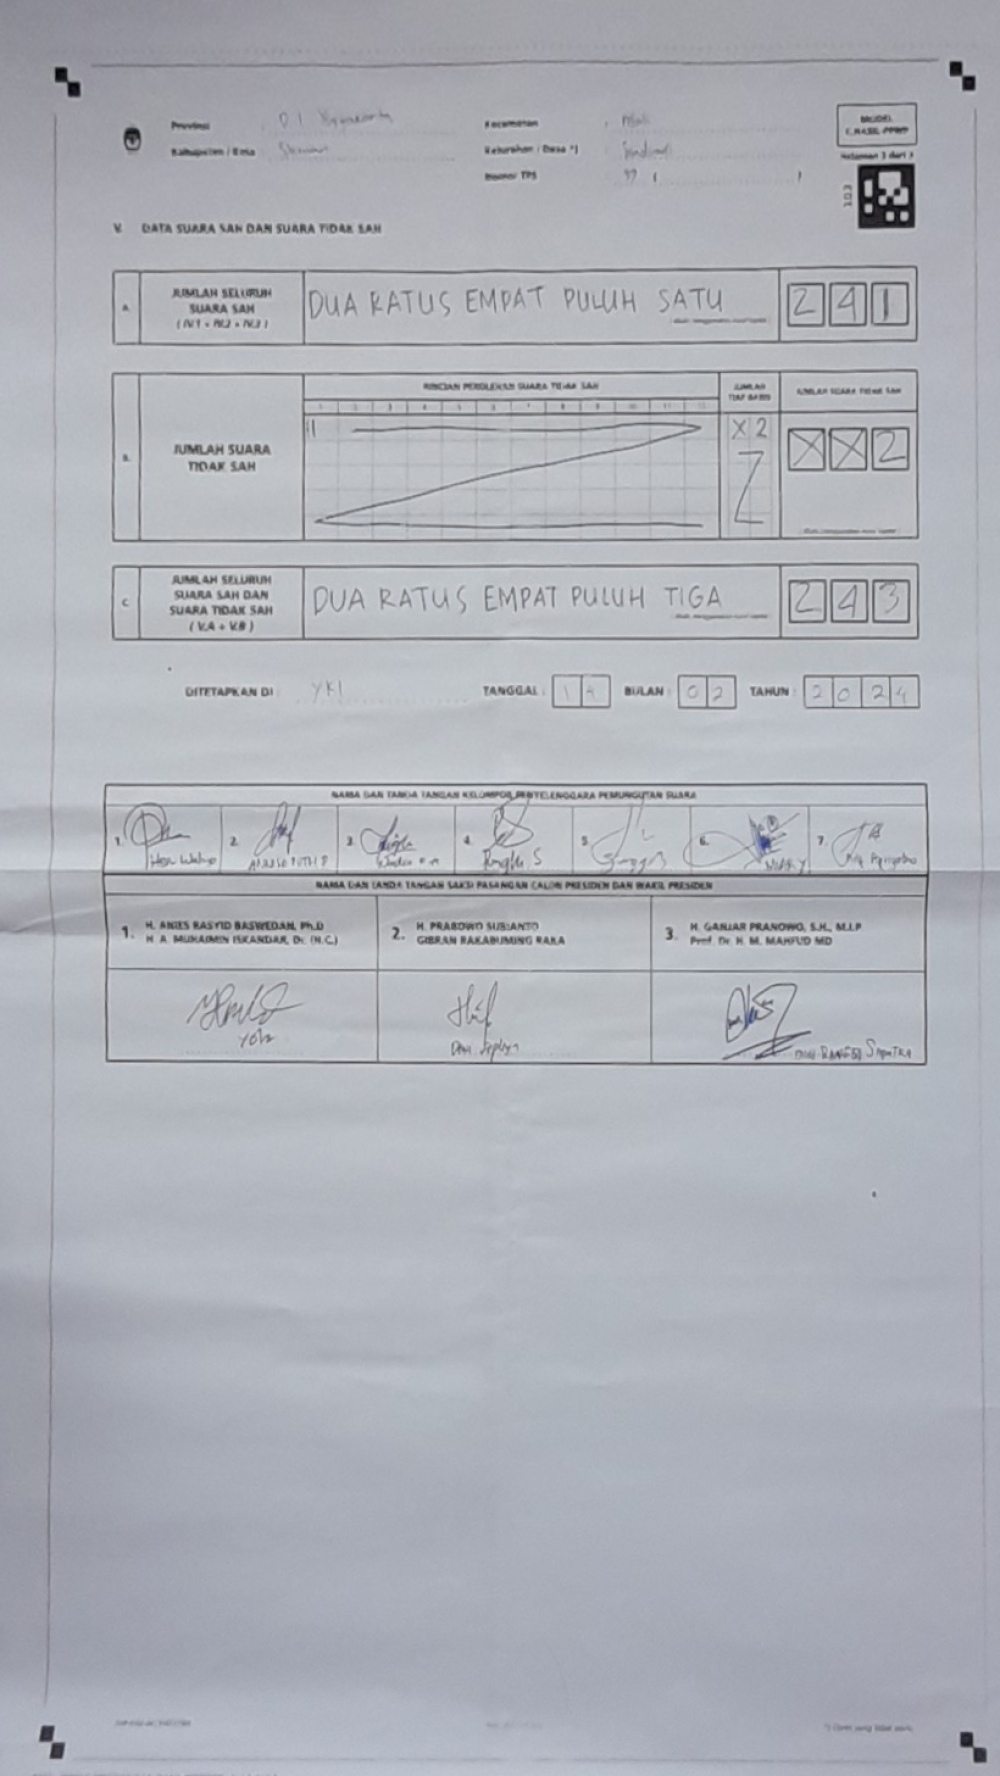 Provinsi : D.I Yogyakarta
Kabupaten / Kota : Sleman
Kecamatan :
Kelurahan / Desa *) :
Nomor TPS : ( )
MODEL
C.HASIL-PPWP
Halaman 3 dari 3
V. DATA SUARA SAH DAN SUARA TIDAK SAH
A. JUMLAH SELURUH
SUARA SAH
( IV.1 + IV.2 + IV.3 )
DUA RATUS EMPAT PULUH SATU
2 4 1
B. JUMLAH SUARA
TIDAK SAH
RINCIAN PEROLEHAN SUARA TIDAK SAH
1 2 3 4 5 6 7 8 9 10 11 12
JUMLAH
TIAP BARIS
X 2
JUMLAH SUARA TIDAK SAH
X X 2
C. JUMLAH SELURUH
SUARA SAH DAN
SUARA TIDAK SAH
( V.A + V.B )
DUA RATUS EMPAT PULUH TIGA
2 4 3
DITETAPKAN DI : YKI TANGGAL : 1 4 BULAN : 0 2 TAHUN : 2 0 2 4
NAMA DAN TANDA TANGAN KELOMPOK PENYELENGGARA PEMUNGUTAN SUARA
1. 2. 3. 4. 5. 6. 7.
NAMA DAN TANDA TANGAN SAKSI PASANGAN CALON PRESIDEN DAN WAKIL PRESIDEN
1. H. ANIES RASYID BASWEDAN, Ph.D
H. A. MUHAIMIN ISKANDAR, Dr. (H.C.)
2. H. PRABOWO SUBIANTO
GIBRAN RAKABUMING RAKA
3. H. GANJAR PRANOWO, S.H., M.I.P
Prof. Dr. H. M. MAHFUD MD
*) Coret yang tidak perlu